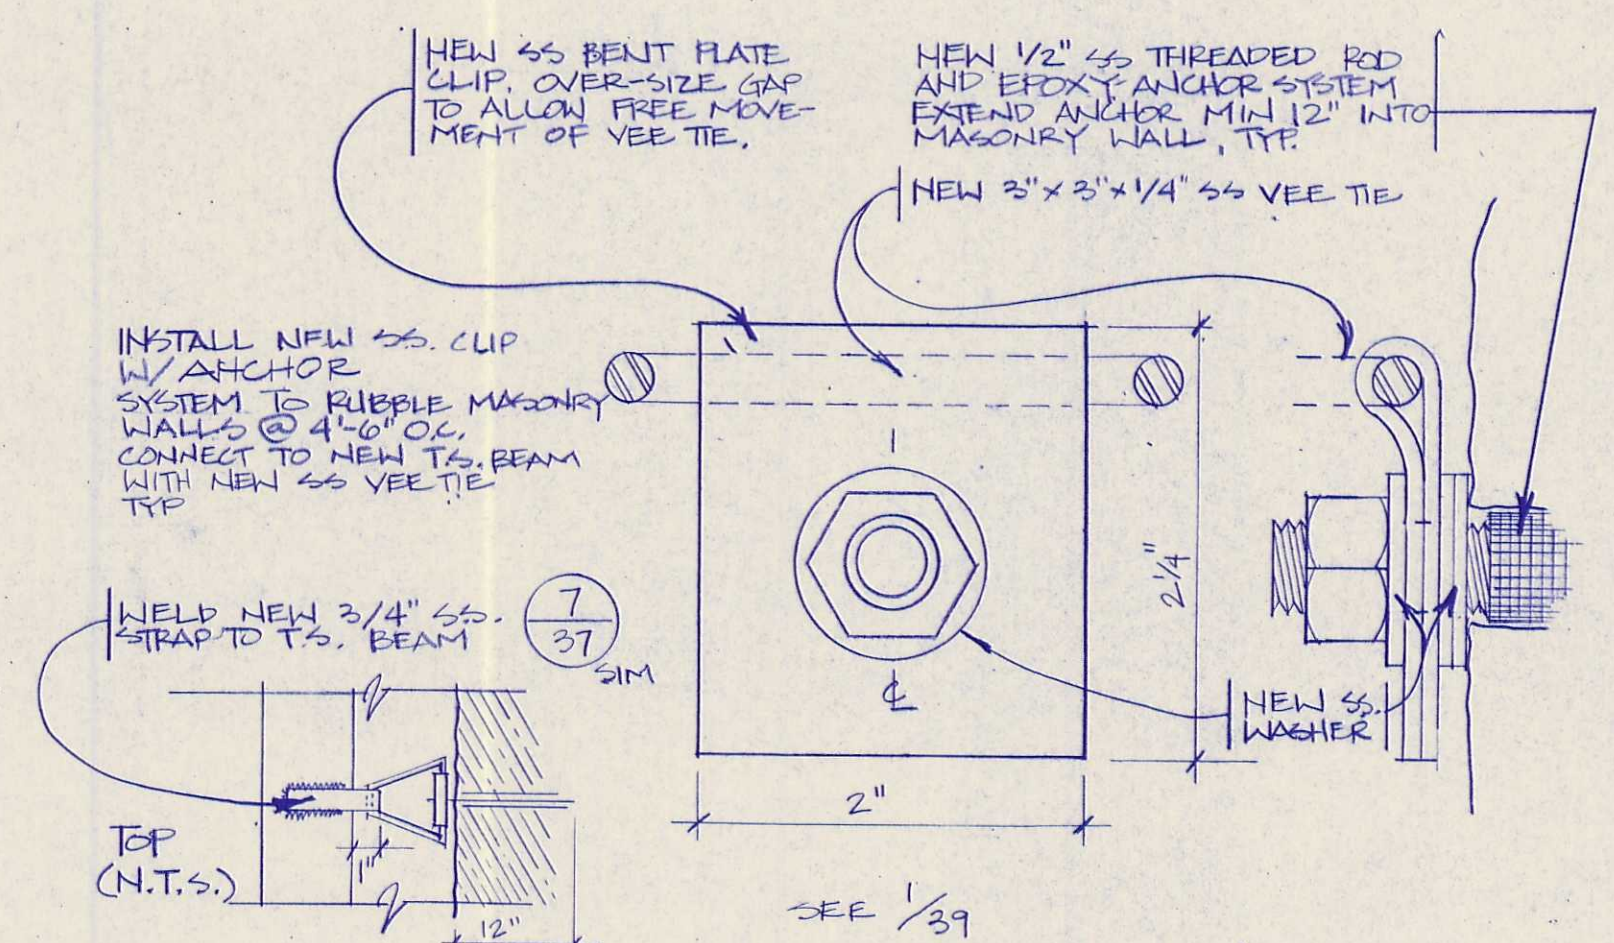 NEW SS BENT PLATE
CLIP. OVER-SIZE GAP
TO ALLOW FREE MOVE-
MENT OF VEE TIE.
NEW 1/2" SS THREADED ROD
AND EPOXY ANCHOR SYSTEM
EXTEND ANCHOR MIN 12" INTO
MASONRY WALL, TYP.
NEW 3" x 3" x 1/4" SS VEE TIE
INSTALL NEW SS. CLIP
W/ ANCHOR
SYSTEM TO RUBBLE MASONRY
WALLS @ 4'-6" O.C.
CONNECT TO NEW T.S. BEAM
WITH NEW SS VEE TIE
TYP
WELD NEW 3/4" SS.
STRAP TO T.S. BEAM
7
37
SIM
2 1/4"
℄
NEW SS.
WASHER
2"
TOP
(N.T.S.)
1"
12"
SEE 1/39